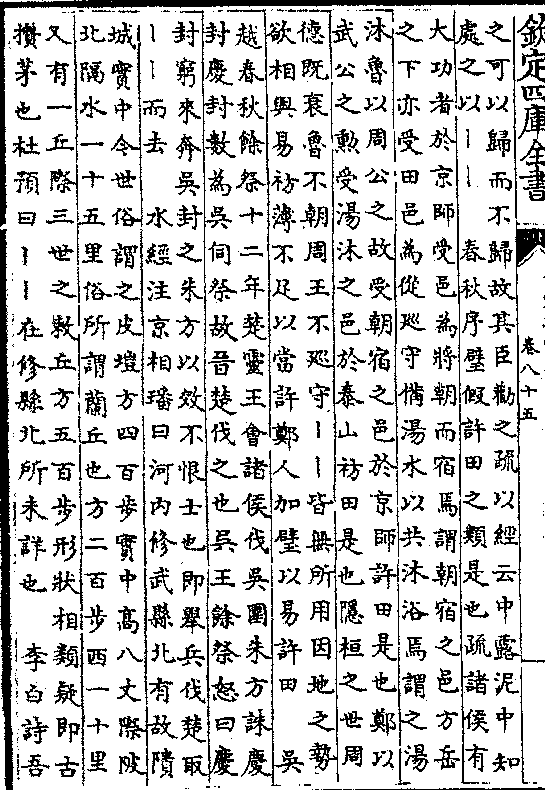 欽定四庫全書
卷八十五
之可以歸而不歸故其臣勸之疏以經云中露泥中知
處之以丨丨　春秋序璧假許田之類是也疏諸侯有
大功者於京師受邑為將朝而宿焉謂朝宿之邑方岳
之下亦受田邑為從巡守備湯水以共沐浴焉謂之湯
沐魯以周公之故受朝宿之邑於京師許田是也鄭以
武公之勲受湯沐之邑於泰山祊田是也隱桓之世周
德既衰魯不朝周王不巡守丨丨皆無所用因地之勢
欲相與易祊薄不足以當許鄭人加璧以易許田　吳
越春秋餘祭十二年楚靈王會諸侯伐吳圍朱方誅慶
封慶封數為吳伺祭故晉楚伐之也吳王餘祭怒曰慶
封窮來奔吳封之朱方以效不恨士也即舉兵伐楚取
丨丨而去　水經注京相璠曰河內修武縣北有故隤
城實中今世俗謂之皮塏方四百步實中高八丈際陂
北隔水一十五里俗所謂蘭丘也方二百步西一十里
又有一丘際三世之數丘方五百步形狀相類疑即古
攢茅也杜預曰丨丨在修縣北所未詳也　李白詩吾